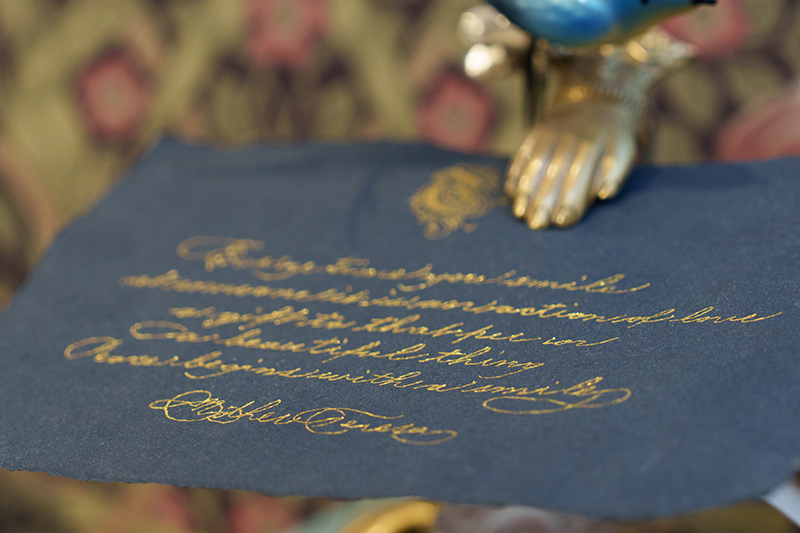 Every time you smile
at someone it is an action of love
a gift to that person
a beautiful thing
Peace begins with a smile
Mother Teresa